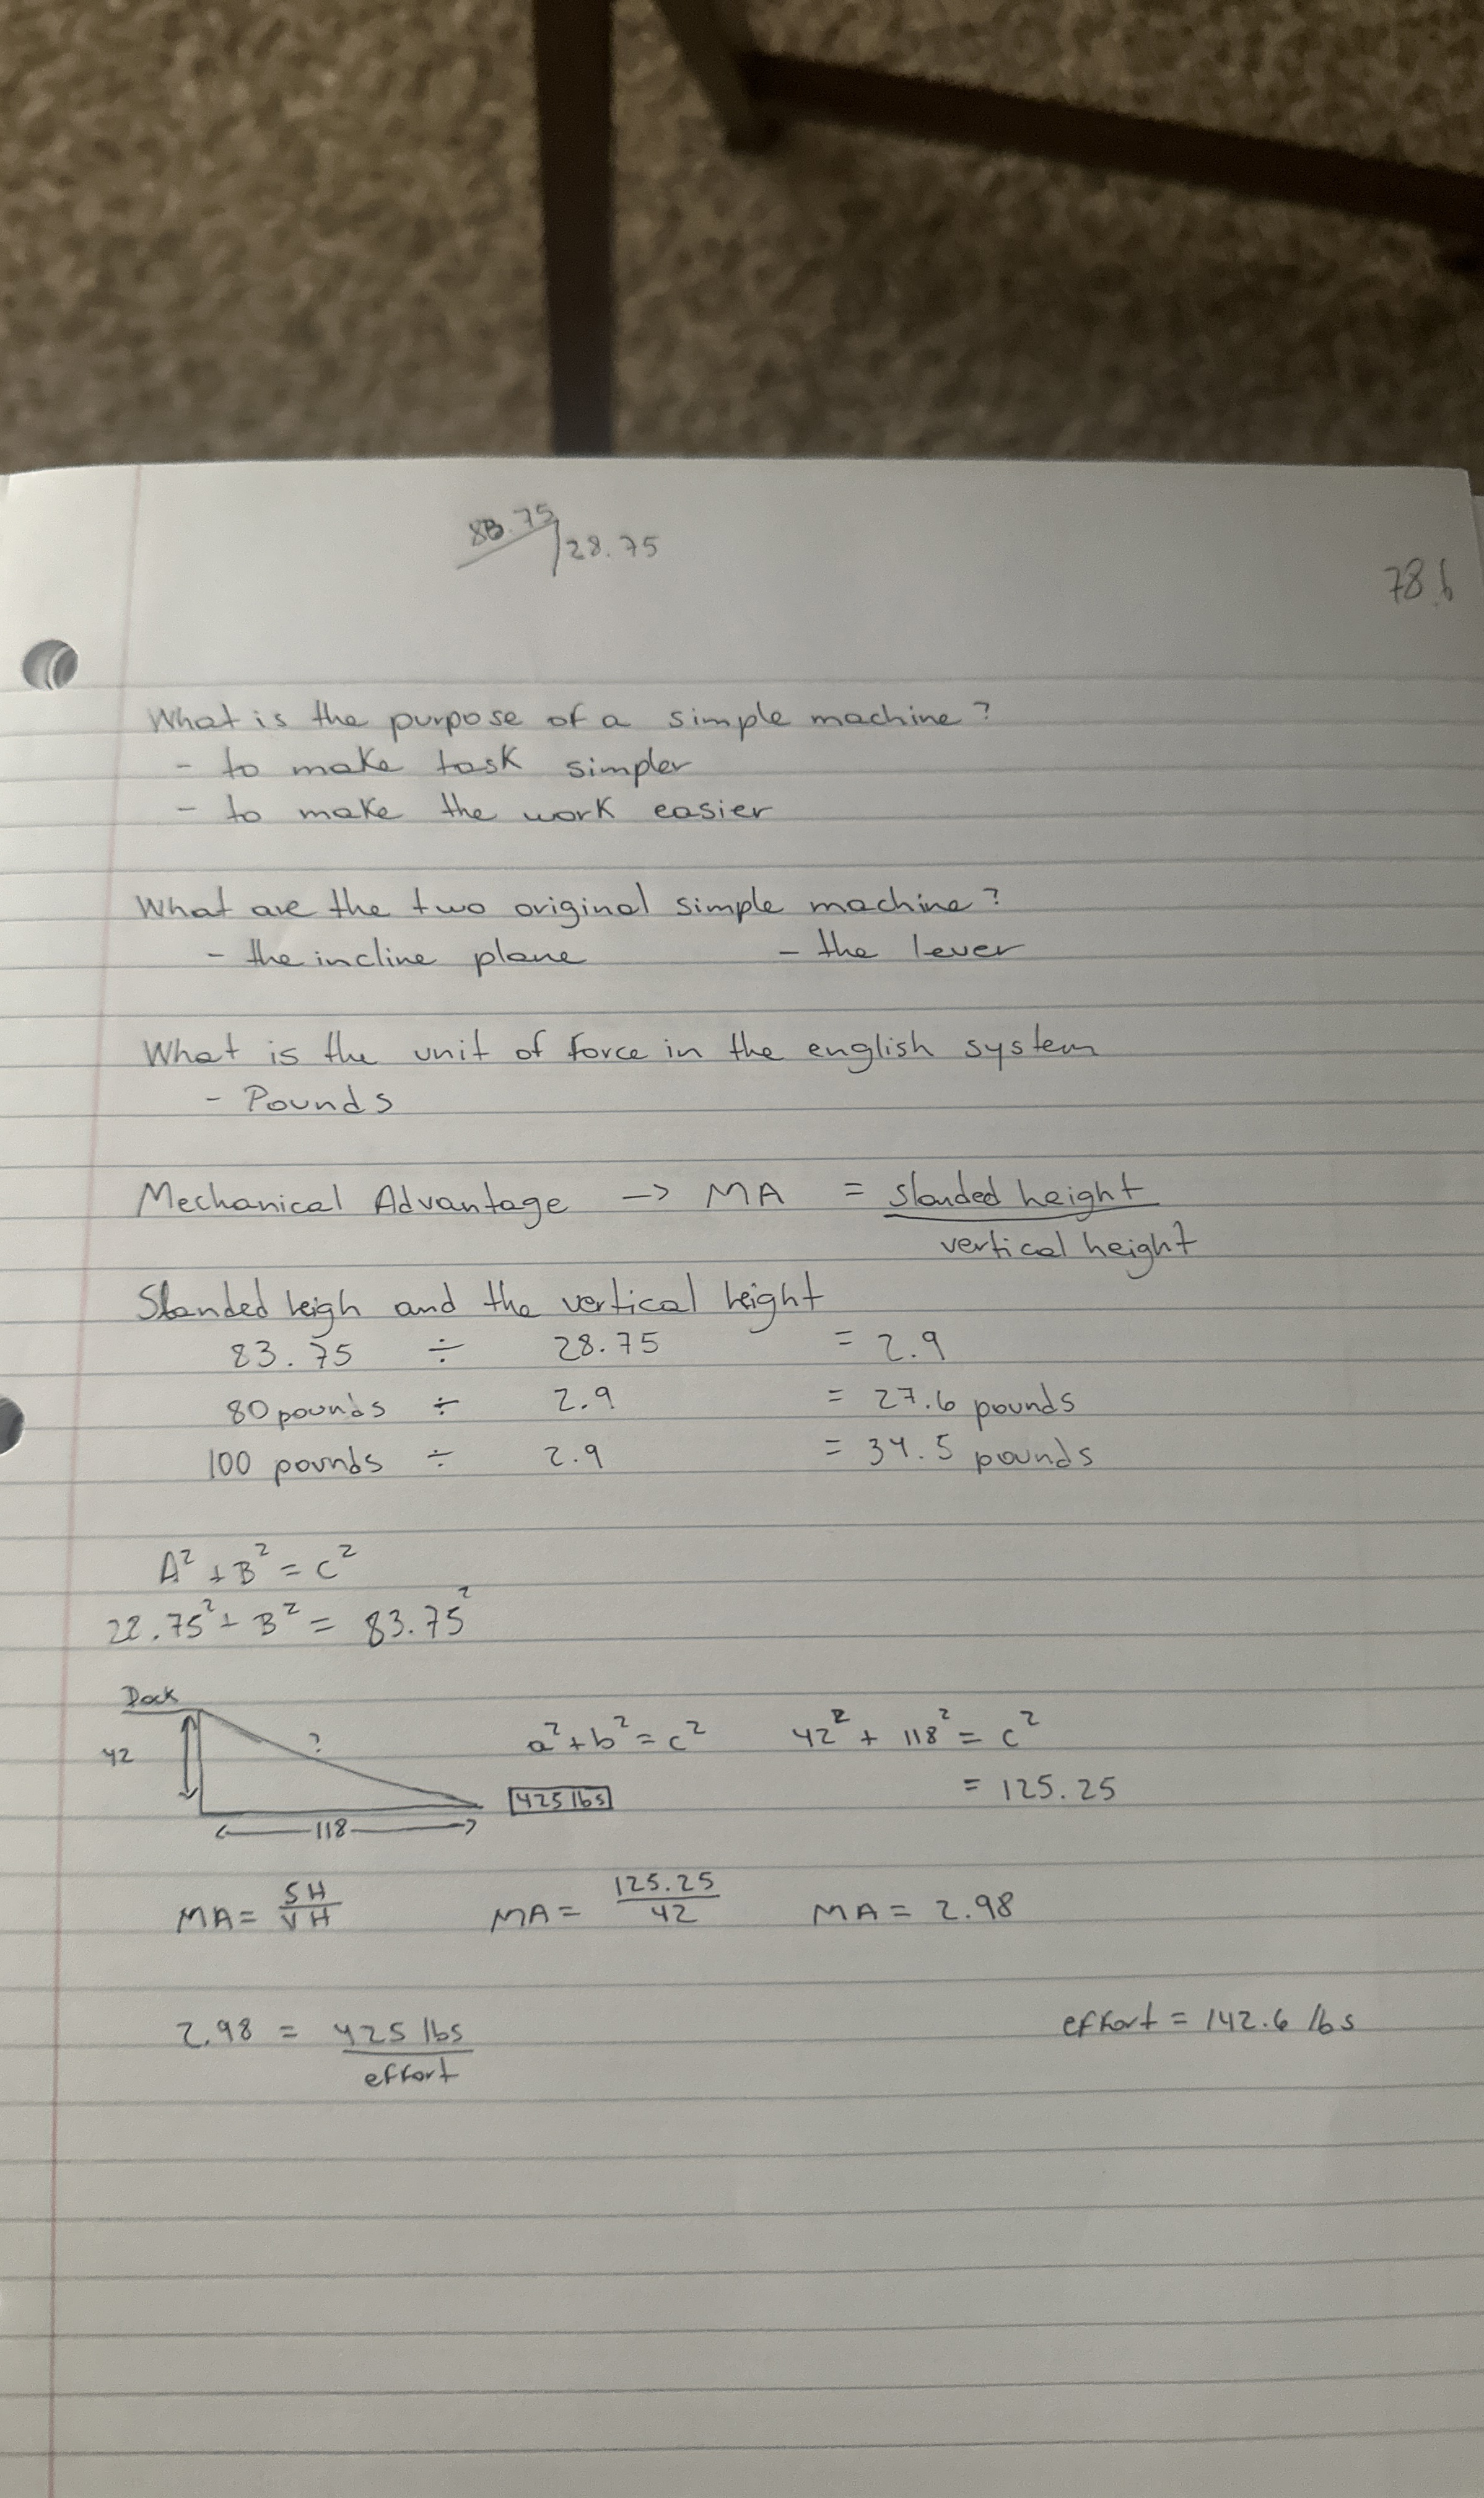 83.75
28.75
78.6
What is the purpose of a simple machine?
- to make task simpler
- to make the work easier
What are the two original simple machine?
- the incline plane - the lever
What is the unit of force in the english system
- Pounds
Mechanical Advantage -> MA = slanded height
vertical height
Slanded heigh and the vertical height
83.75 ÷ 28.75 = 2.9
80 pounds ÷ 2.9 = 27.6 pounds
100 pounds ÷ 2.9 = 34.5 pounds
A² + B² = C²
22.75² + B² = 83.75²
Dock
42 ? a² + b² = c² 42² + 118² = c²
425 lbs = 125.25
118
MA = SH/VH MA = 125.25/42 MA = 2.98
2.98 = 425 lbs effort = 142.6 lbs
effort